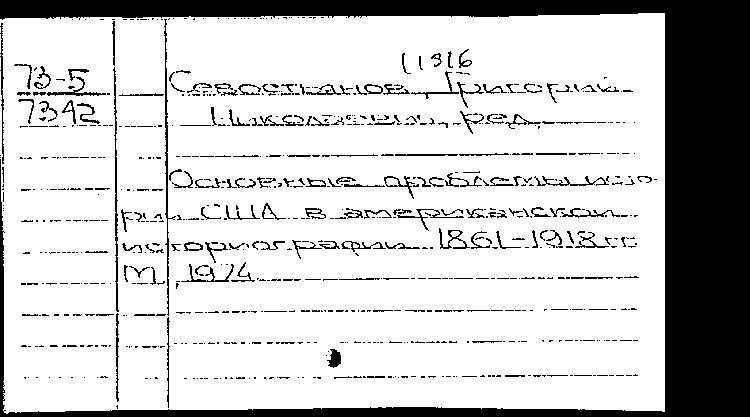 (1916
73-5 Севостьянов, Григорий
7342 Николаевич, ред.
Основные проблемы исто-
рии США в американской
историографии 1861-1918 гг.
М., 1974